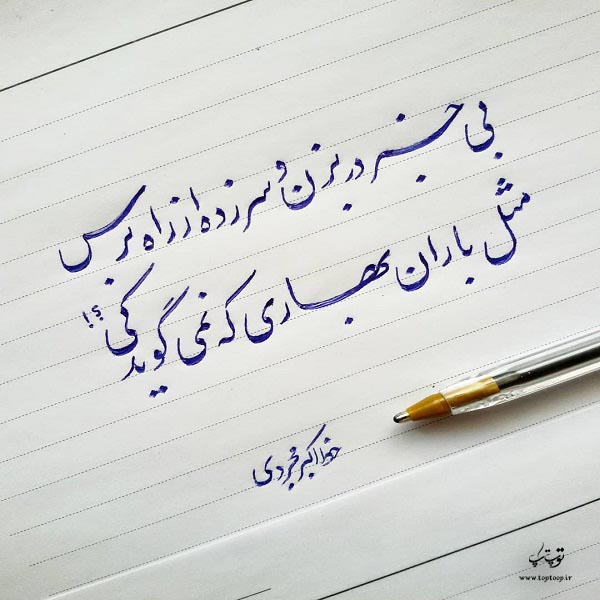 بی خبر در بزن و سرزده از راه برس
مثل باران بهاری که نمی گوید کی؟!
خط اکبر مجردی
توپ تاپ
www.toptoop.ir